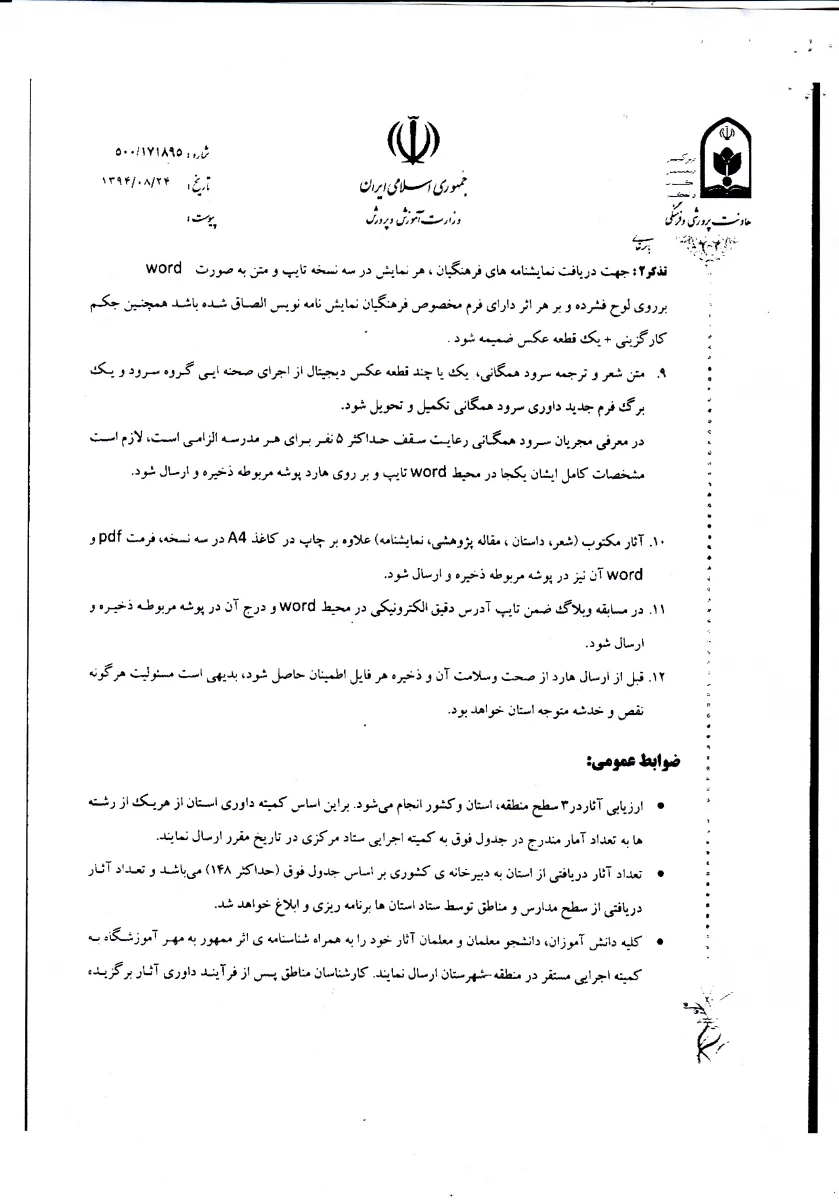 شماره: ۵۰۰/۱۷۱۸۹۵
تاریخ: ۱۳۹۴/۰۸/۲۴
پیوست:
جمهوری اسلامی ایران
وزارت آموزش و پرورش
معاونت پرورشی و فرهنگی
تذکر۲: جهت دریافت نمایشنامه های فرهنگیان ، هر نمایش در سه نسخه تایپ و متن به صورت word
برروی لوح فشرده و بر هر اثر دارای فرم مخصوص فرهنگیان نمایش نامه نویس الصاق شده باشد همچنین حکم
کارگزینی + یک قطعه عکس ضمیمه شود .
۹. متن شعر و ترجمه سرود همگانی، یک یا چند قطعه عکس دیجیتال از اجرای صحنه ایی گروه سرود و یک
برگ فرم جدید داوری سرود همگانی تکمیل و تحویل شود.
در معرفی مجریان سرود همگانی رعایت سقف حداکثر ۵ نفر برای هر مدرسه الزامی است، لازم است
مشخصات کامل ایشان یکجا در محیط word تایپ و بر روی هارد پوشه مربوطه ذخیره و ارسال شود.
۱۰. آثار مکتوب (شعر، داستان ، مقاله پژوهشی، نمایشنامه) علاوه بر چاپ در کاغذ A4 در سه نسخه، فرمت pdf و
word آن نیز در پوشه مربوطه ذخیره و ارسال شود.
۱۱. در مسابقه وبلاگ ضمن تایپ آدرس دقیق الکترونیکی در محیط word و درج آن در پوشه مربوطه ذخیره و
ارسال شود.
۱۲. قبل از ارسال هارد از صحت وسلامت آن و ذخیره هر فایل اطمینان حاصل شود، بدیهی است مسئولیت هرگونه
نقص و خدشه متوجه استان خواهد بود.
ضوابط عمومی:
● ارزیابی آثاردر۳ سطح منطقه، استان وکشور انجام می‌شود. براین اساس کمیته داوری استان از هریک از رشته
ها به تعداد آمار مندرج در جدول فوق به کمیته اجرایی ستاد مرکزی در تاریخ مقرر ارسال نمایند.
● تعداد آثار دریافتی از استان به دبیرخانه ی کشوری بر اساس جدول فوق (حداکثر ۱۴۸) می‌باشد و تعداد آثار
دریافتی از سطح مدارس و مناطق توسط ستاد استان ها برنامه ریزی و ابلاغ خواهد شد.
● کلیه دانش آموزان، دانشجو معلمان و معلمان آثار خود را به همراه شناسنامه ی اثر ممهور به مهر آموزشگاه به
کمیته اجرایی مستقر در منطقه-شهرستان ارسال نمایند. کارشناسان مناطق پس از فرآیند داوری آثار برگزیده